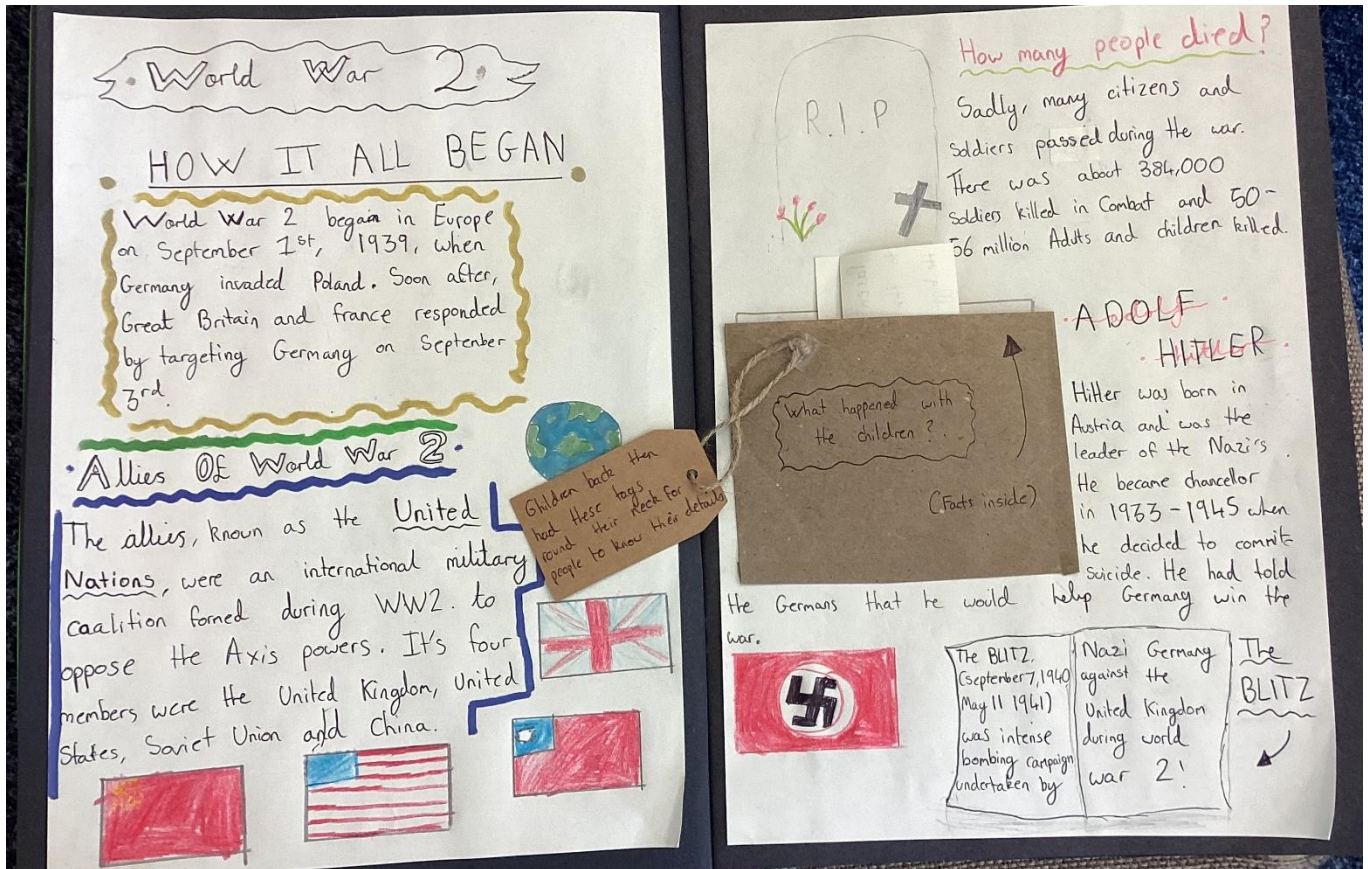 World War 2
HOW IT ALL BEGAN
World War 2 began in Europe
on September 1st, 1939, when
Germany invaded Poland. Soon after,
Great Britain and france responded
by targeting Germany on September
3rd.
Allies Of World War 2
The allies, known as the United
Nations, were an international military
caalition formed during WW2. to
oppose the Axis powers. It's four
members were the United Kingdom, United
States, Soviet Union and China.
Children back then
had these tags
round their neck for
people to know their details
R.I.P
How many people died?
Sadly, many citizens and
soldiers passed during the war.
There was about 384,000
soldiers killed in Combat and 50-
56 million Aduts and children killed.
What happened with
the children?..
(Facts inside)
ADOLF
HITLER
Hitler was born in
Austria and was the
leader of the Nazi's.
He became chancellor
in 1933-1945 when
he decided to commit
suicide. He had told
the Germans that he would help Germany win the
war.
The BLITZ,
(september 7, 1940
May 11 1941)
was intense
bombing campaign
undertaken by
Nazi Germany
against the
United Kingdom
during world
war 2!
The
BLITZ